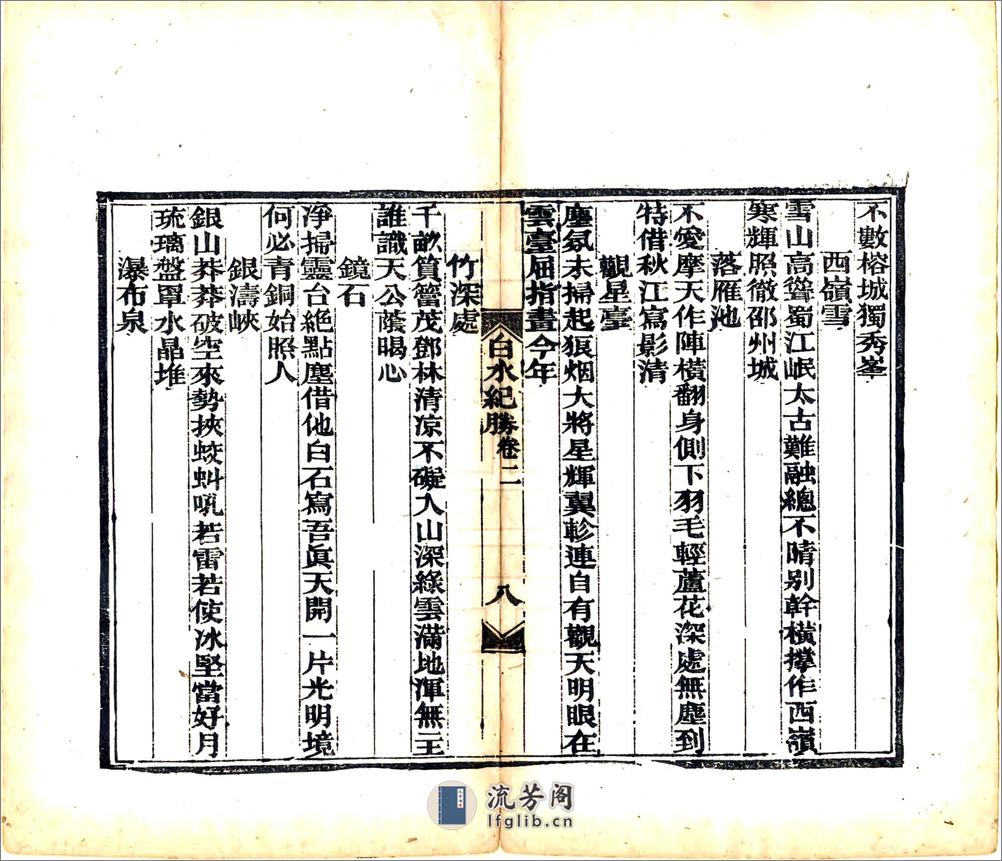 不數榕城獨秀峯
西嶺雪
雪山高聳蜀江岷太古難融總不晴别幹橫撑作西嶺
寒輝照徹邵州城
落雁池
不愛摩天作陣橫翻身側下羽毛輕蘆花深處無塵到
特借秋江寫影清
觀星臺
塵氛未掃起狼烟大將星輝翼軫連自有觀天明眼在
雲臺屈指畫今年
白水紀勝卷二
八
竹深處
千畝篔簹茂鄧林清凉不礙入山深綠雲滿地渾無主
誰識天公蔭暍心
鏡石
淨掃靈台絶點塵借他白石寫吾眞天開一片光明境
何必青銅始照人
銀濤峽
銀山莽莽破空來勢挾蛟虬吼若雷若使冰堅當好月
琉璃盤罩水晶堆
瀑布泉
流芳阁
lfglib.cn